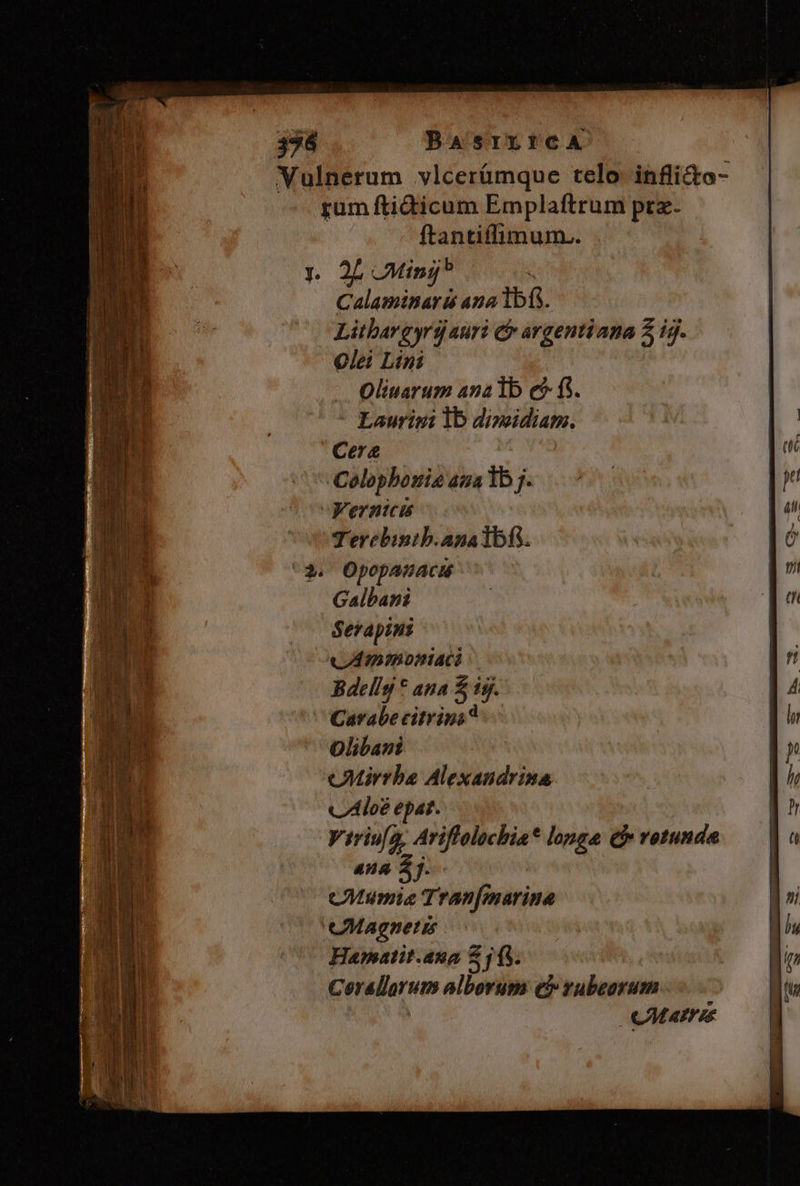 376 BASILICA
Vulnerum vlcerúmque telo inflicto-
rum ſticticum Emplaſtrum præ-
ſtantiſſimum.
1. ♃ Minij b
Calaminaris ana ℔ß.
Lithargyrij auri & argenti ana ℥ iij.
Olei Lini
Oliuarum ana ℔ & ß.
Laurini ℔ dimidiam.
Ceræ
Colophoniæ ana ℔ j.
Vernicis
Terebinth. ana ℔ß.
2. Opopanacis
Galbani
Serapini
Ammoniaci
Bdellij c ana ℥ iij.
Carabe citrini d
Olibani
Mirrhæ Alexandrinæ
Aloë epat.
Vtriuſq; Ariſtolochiæ e longæ & rotundæ
ana ℥j.
Mumiæ Tranſmarinæ
Magnetis
Hæmatit. ana ℥jß.
Corallorum alborum & rubeorum
Matris